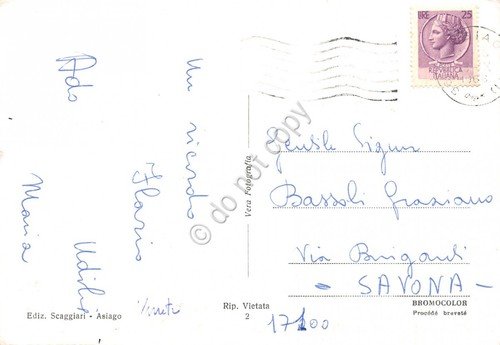 Un ricordo
Ilario
Ado
Maria
LIRE 25
REPUBBLICA
ITALIANA
Gentile Signor
Bassoli Graziano
Via Briganti
- SAVONA -
17100
Vera Fotografia
Ediz. Scaggiari - Asiago
Rip. Vietata
2
BROMOCOLOR
Procédé breveté
do not copy